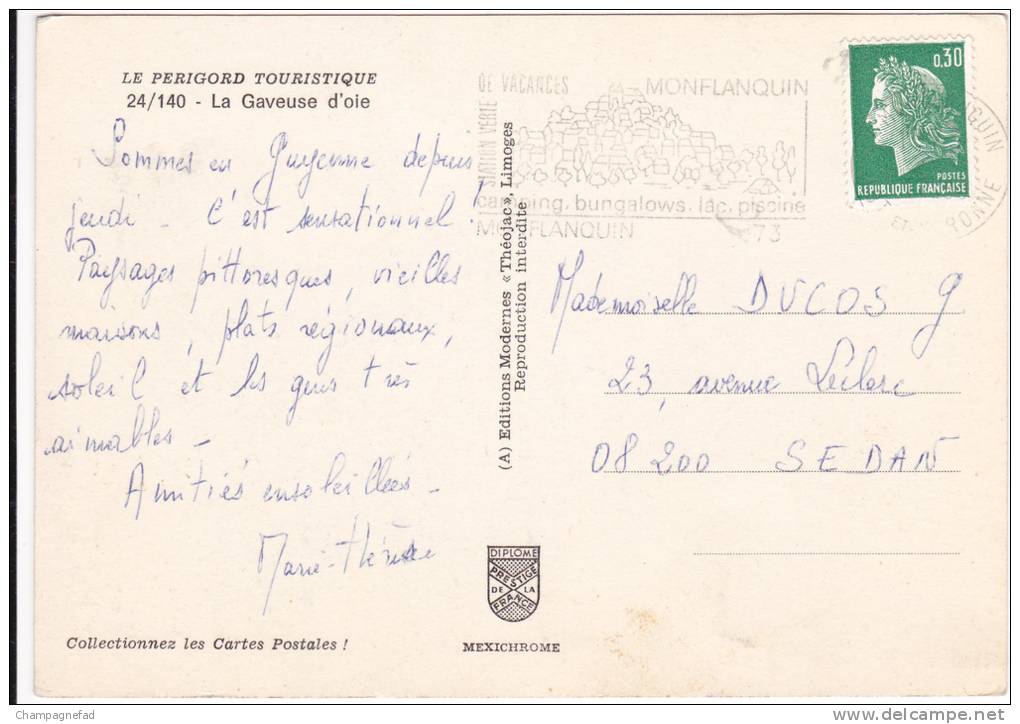 LE PERIGORD TOURISTIQUE
24/140 - La Gaveuse d'oie
Sommes en Guyenne depuis
jeudi - C'est sensationnel !
Paysages pittoresques, vieilles
maisons, plats régionaux,
soleil et les gens très
aimables -
Amitiés ensoleillées -
Marie-Thérèse
Collectionnez les Cartes Postales !
(A) Editions Modernes « Théojac », Limoges
Reproduction interdite
DIPLOME
PRESTIGE
DE LA
FRANCE
MEXICHROME
STATION VERTE
DE VACANCES
MONFLANQUIN
camping. bungalows. lac. piscine
MONFLANQUIN
73
0,30
POSTES
REPUBLIQUE FRANÇAISE
Mademoiselle DUCOS G
23, avenue Leclerc
08200 SEDAN
Champagnefad
http://www.delcampe.net